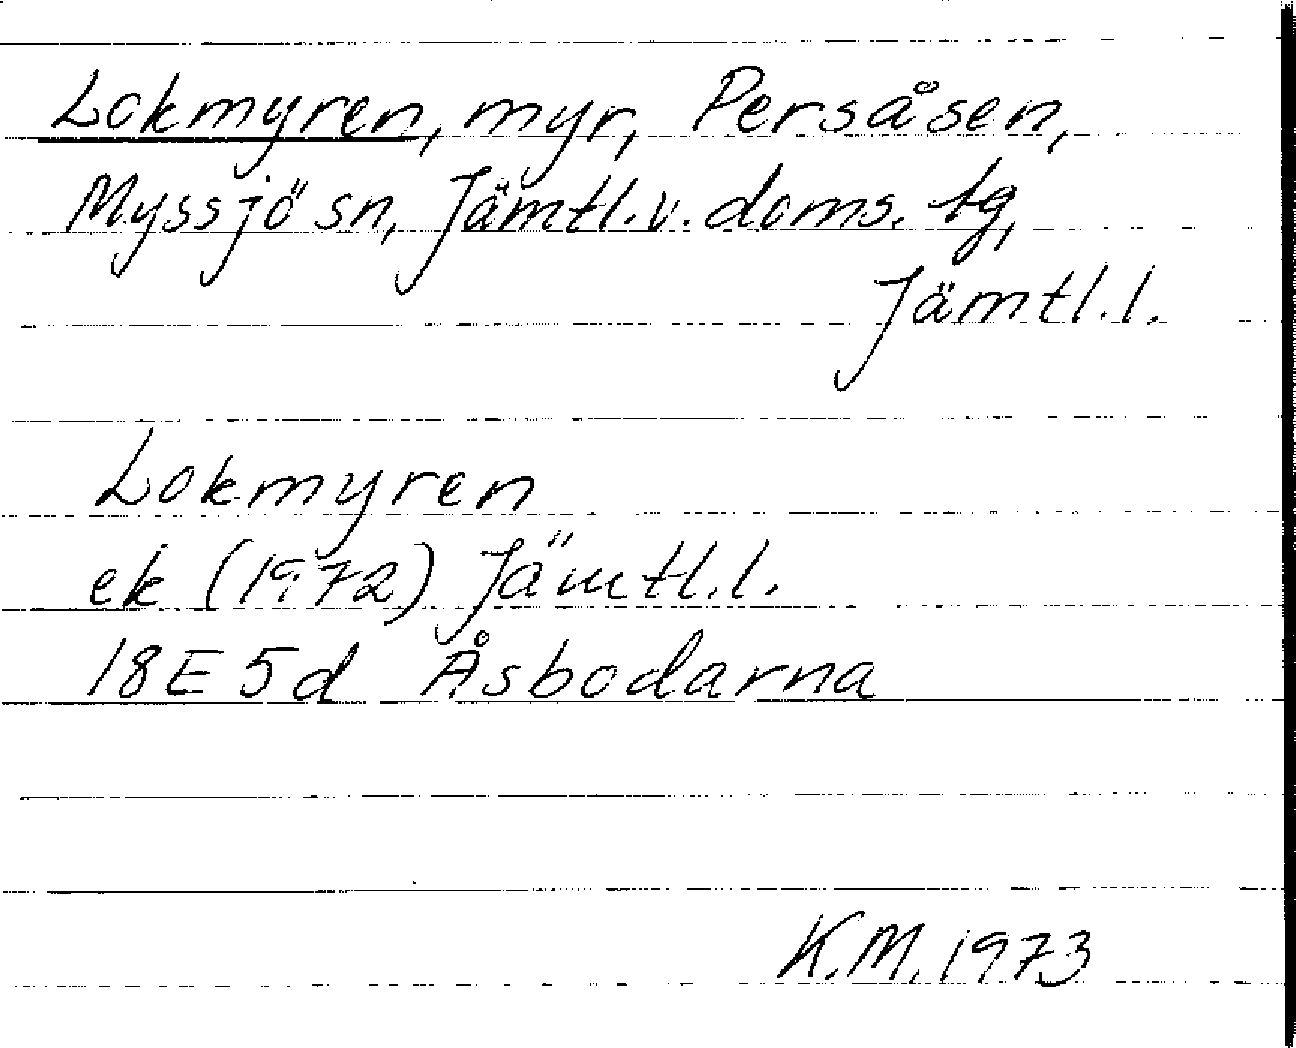 Lokmyren, myr, Persåsen,
Myssjö sn, Jämtl.v.doms.tg,
Jämtl.l.
Lokmyren
ek (1972) Jämtl.l.
18E5d Åsbodarna
K.M.1973